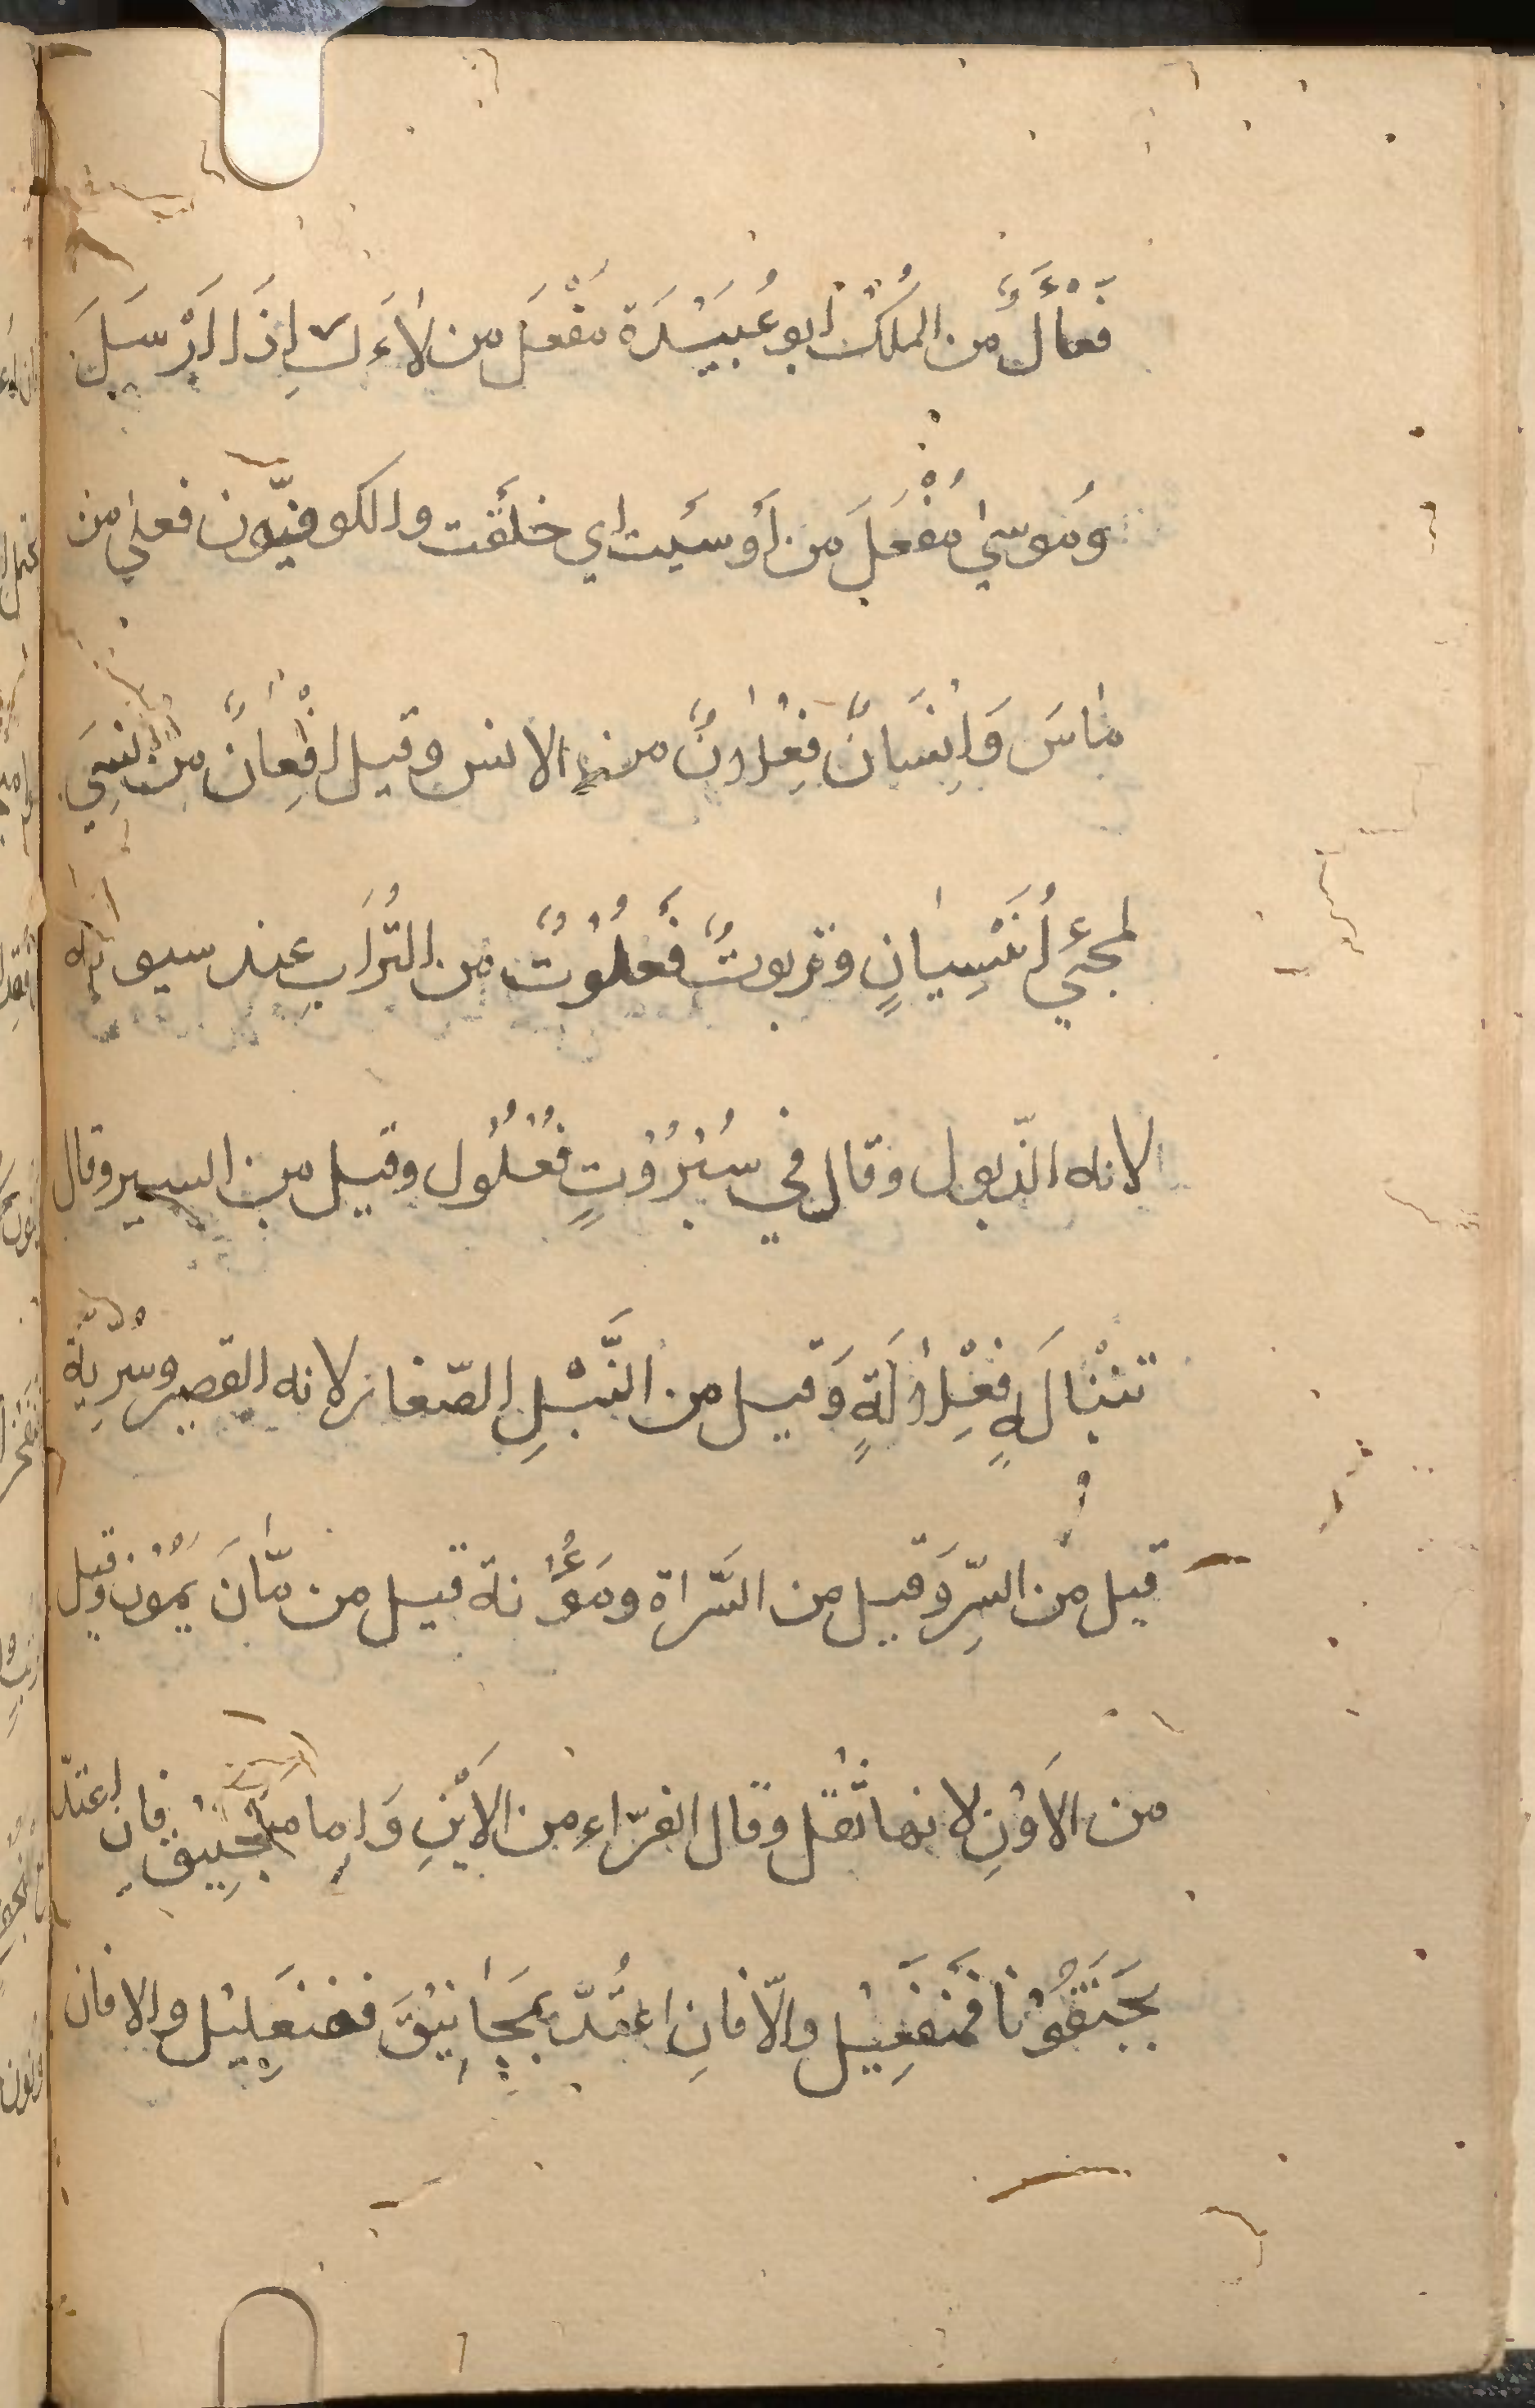 فَعْأَلٌ من المُلْكُ ابو عُبَيْدَة مَفْعَل من لأَءَكَ اِذَا اَرْسَلَ
وَمُوسىٰ مُفْعَلَ من أَوْسَيت اي حَلَقْت والكوفيّون فعلىٰ من
مٰاسَ وَاِنْسَانٌ فِعْلانٌ من الانس وقيل افْعِانٌ من نَسِيَ
لمجئي أُنَيْسِيانٍ وتربوتٌ فَعَلُوتٌ من التُّرَابِ عند سيبويه
لانه الذّلول وقال في سُبْرُوْتٍ فُعْلُول وقيل من السبر وقال
تنْبالَةٍ فِعْلٰالَةٍ وَقيل من النَّبْلِ الصّغار لانه القصير وسُرِّيّة
قيل من السِّر وَقيل من السَّراة ومَؤُنة قيل من مٰانَ يَمُوْن وقيل
من الاَوْنِ لانها ثْقل وقال الفرّاء من الاَيْنِ وَاما منجنيق فان اعتدّ
بجَنَقُوْنا فَمَنْفَعِيْل والّا فانِ اعتُدّ بمَجٰانِيْقَ ففنعَلِيْل والا فان